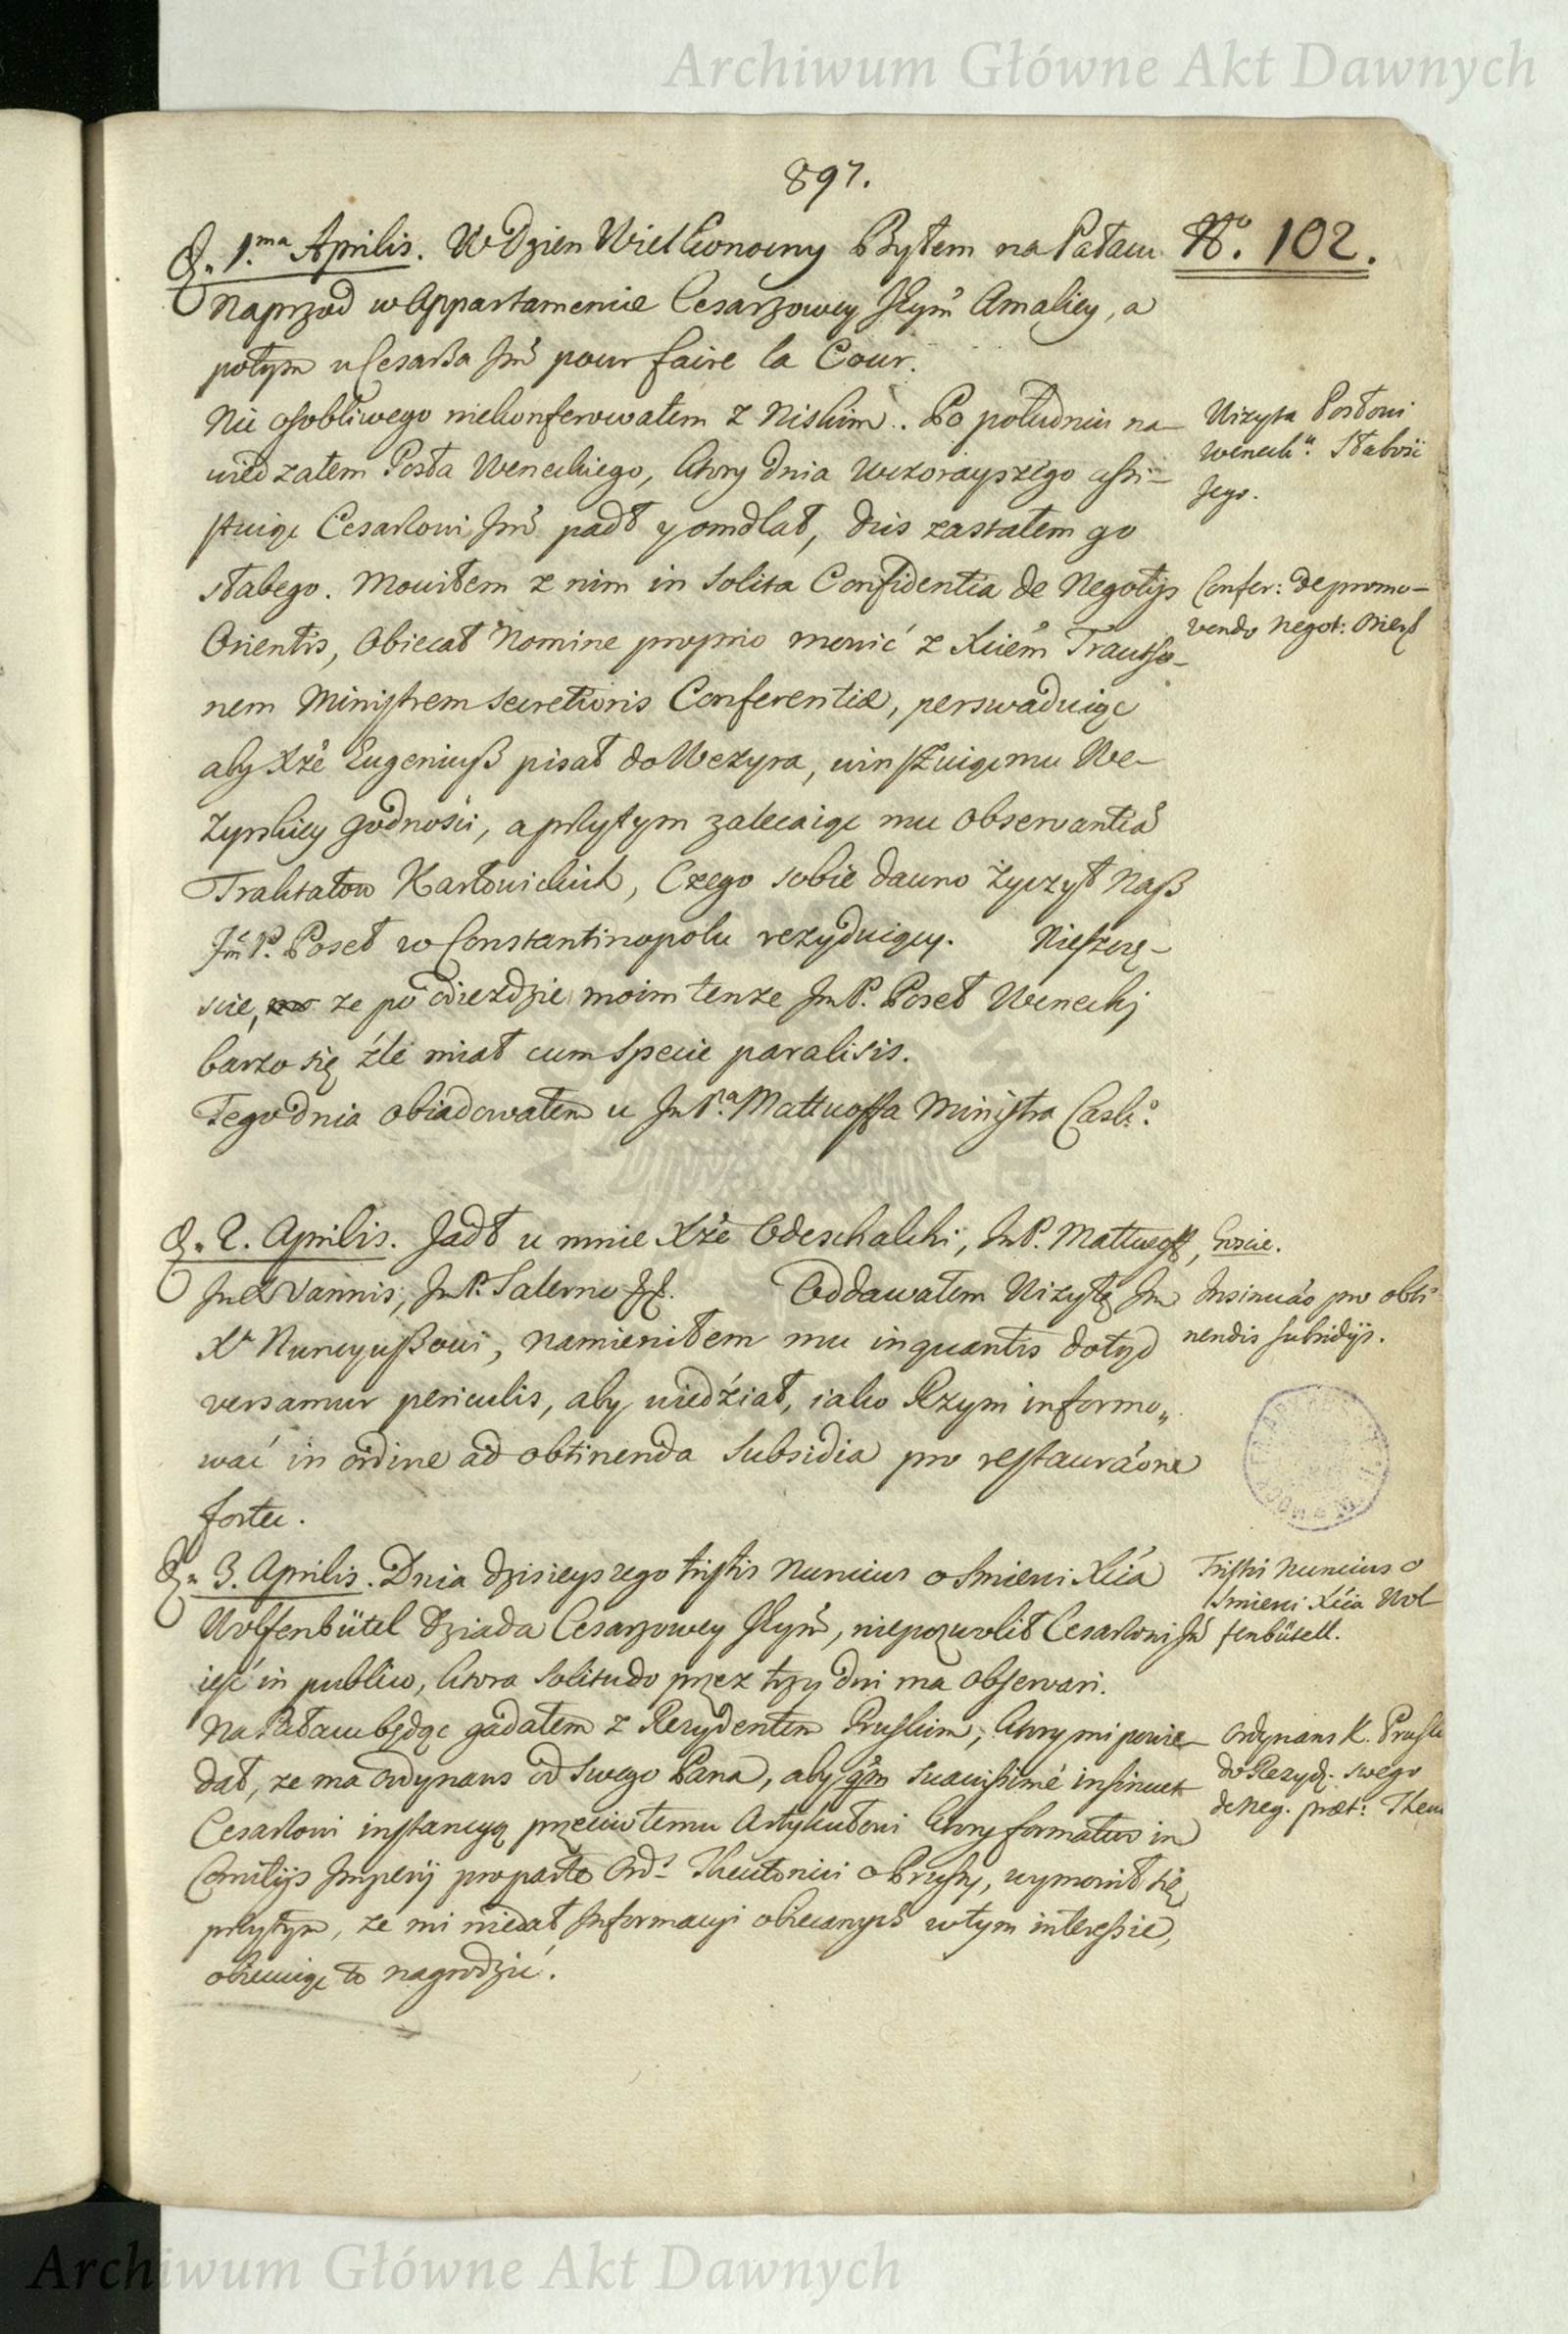 Archiwum Główne Akt Dawnych
897.
D. 1.ma Aprilis. W Dzien Wielkonocny Bylem na Pałacu
No. 102.
Naprzod w Appartamencie Cesarzowey Jeym Amaliey, a
potym u Cesarza Jm pour faire la Cour.
Nic osobliwego niekonferowałem z Niskim.. Po południu na-
wiedzałem Posła Weneckiego, ktory dnia wczorayszego assi-
stuiąc Cesarzowi Jm padł y omdlał, dzis zastałem go
słabego. Mowiłem z nim in solita Confidentia de Negotijs
Orientis, Obiecał Nomine proprio mowić z Xciem Trautso-
nem Ministrem secretioris Conferentiæ, perswaduiąc
aby Xże Eugeniusz pisał do Wezyra, winszuiąc mu We-
zyrskiey godności, a przytym zalecaiąc mu observantia
Traktatow Karłowickich, Czego sobie dawno życzył Nasz
Jm P. Poseł w Constantinopolu rezyduiący. Nieszczę-
scie, ze po odiezdzie moim tenze Jm P. Poseł Wenecki
barzo się źle miał cum specie paralisis.
Tego dnia obiadowałem u Jm Pa Mattuoffa Ministra Carsk:o
Wizyta Posłowi
Weneck: Słabość
Jego.
Confer: de promo-
vendo Negot: Orient
D. 2. Aprilis. Jadł u mnie Xże Odeschalchi, Jm P. Mattueoff,
Jm X Vannis, Jm P. Salerno Oddawałem Wizytę Jm
X Nuncyuszowi, namieniłem mu in quantis dotąd
versamur periculis, aby wiedział, iako Rzym informo-
wać in ordine ad obtinenda Subsidia pro restauraõne
fortec.
Goscie.
Insinuaõ pro obti-
nendis subsidijs.
D. 3. Aprilis. Dnia dzisieyszego tristis Nuncius o Smierci Xcia
Wolfenbüttel Dziada Cesarzowey Jeym, niepozwolił Cesarzowi Jm
ieść in publico, ktora Solitudo przez trzy dni ma observari.
Na Pałacu będąc gadałem z Rezydentem Pruskim, ktory mi powie-
dał, ze ma Ordynans od Swego Pana, aby qm suavissimé insinuet
Cesarzowi instancyą przeciw temu Artykułowi ktory formatur in
Comitijs Imperij pro parte Ord: Theutonici o Prusy, wymowił się
przytym, ze mi niedał Informacyi obiecanych w tym interessie,
obiecuiąc to nagrodzić.
Tristis Nuncius o
Smierci Xcia Wol-
fenbütell.
Ordynans K. Prusk
do Rezyd. swego
de Neg. præt: Theu
Archiwum Główne Akt Dawnych